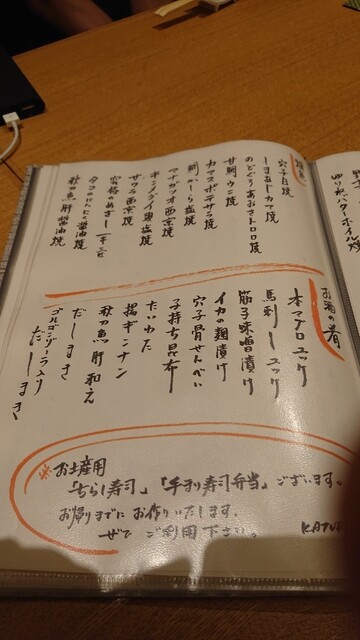 焼魚
穴子白焼
しまあじカマ焼
のどぐろあおさトロロ焼
甘鯛ウニ焼
カマスポテサラ焼
鯛かしら塩焼
マナガツオ西京焼
キンメダイ塩焼
サワラ西京焼
タコのにんにく醤油焼
秋刀魚肝醤油焼
お酒の肴
本マグロユッケ
馬刺しユッケ
筋子味噌漬け
イカの麹漬け
穴子骨せんべい
子持ち昆布
たいわた
揚ギンナン
秋刀魚肝和え
だしまき
ゴルゴンゾーラ入り
だしまき
※お土産用
「ちらし寿司」「手まり寿司弁当」ございます。
お帰りまでにお作りいたします。
ぜひご利用下さい。
ゆり根バターホイル焼